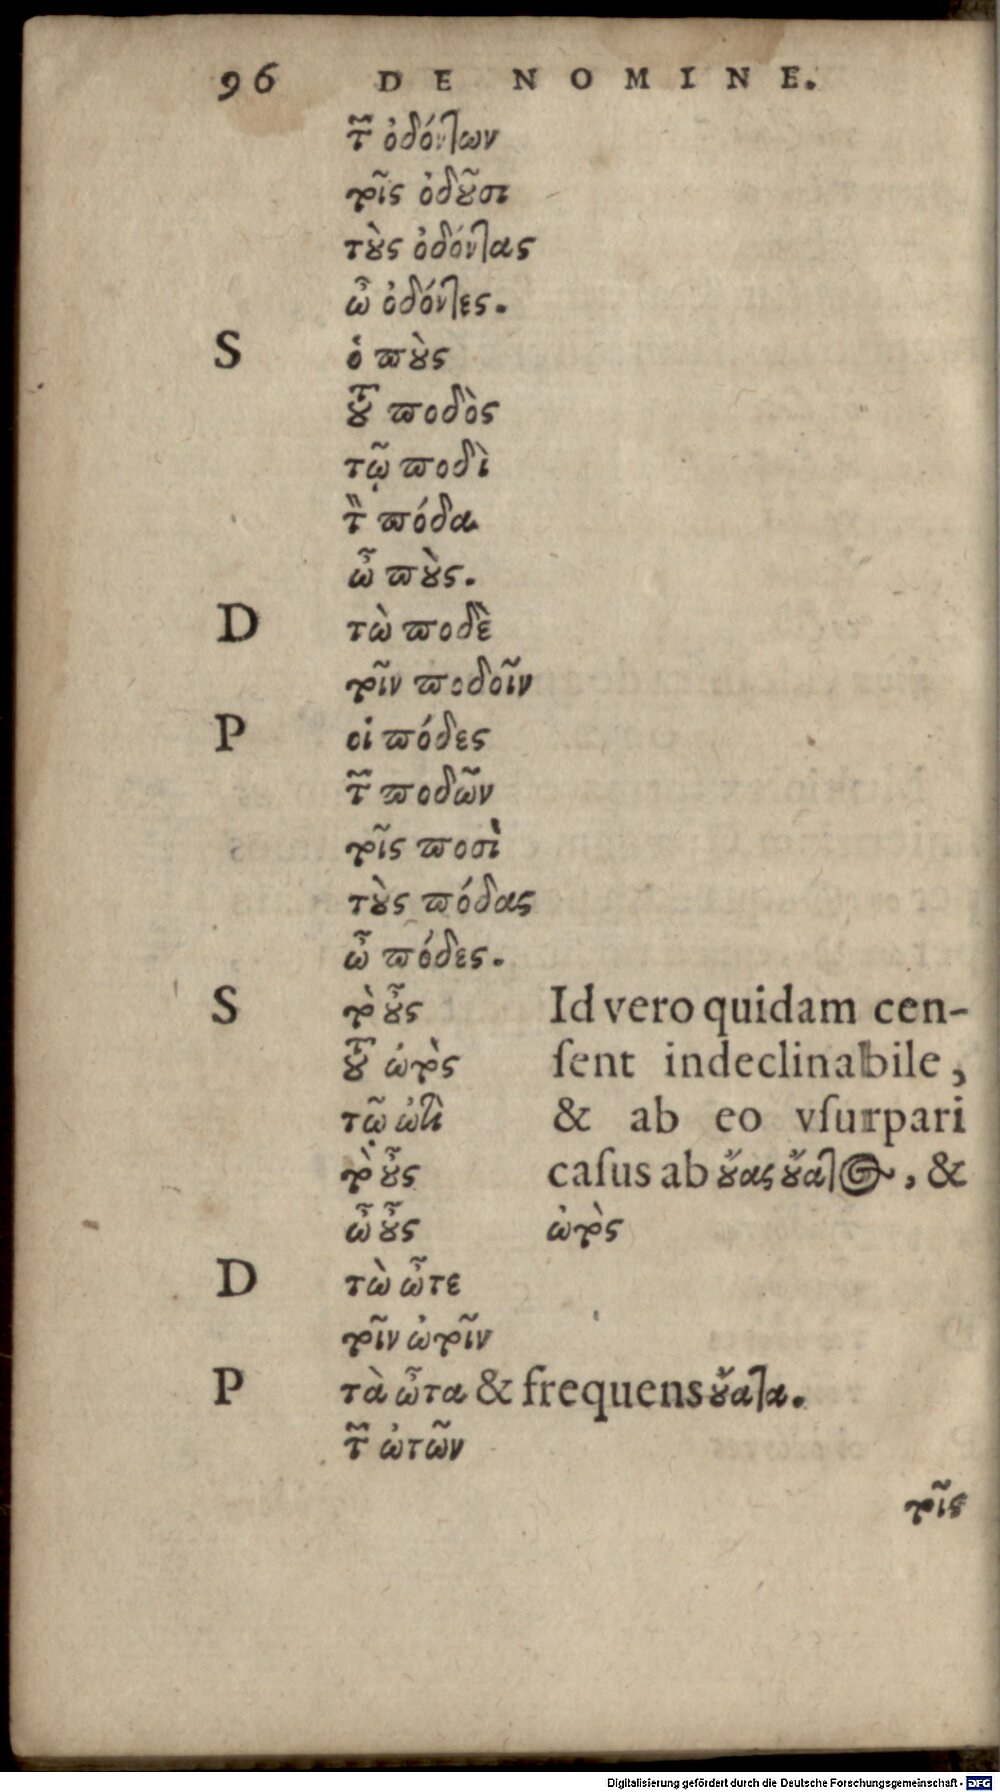 96 DE NOMINE.
τῶν ὀδόντων
τοῖς ὀδοῦσι
τοὺς ὀδόντας
ὦ ὀδόντες.
S ὁ ποὺς
τοῦ ποδὸς
τῷ ποδὶ
τὸν πόδα
ὦ ποὺς.
D τὼ ποδὲ
τοῖν ποδοῖν
P οἱ πόδες
τῶν ποδῶν
τοῖς ποσὶ
τοὺς πόδας
ὦ πόδες.
S τὸ οὖς Id vero quidam cen-
τοῦ ὠτὸς ſent indeclinabile,
τῷ ὠτὶ & ab eo vſurpari
τὸ οὖς caſus ab οὔας οὔατος, &
ὦ οὖς ὠτὸς
D τὼ ὦτε
τοῖν ὠτοῖν
P τὰ ὦτα & frequens οὔατα.
τῶν ὠτῶν
τοῖς
Digitalisierung gefördert durch die Deutsche Forschungsgemeinschaft - DFG